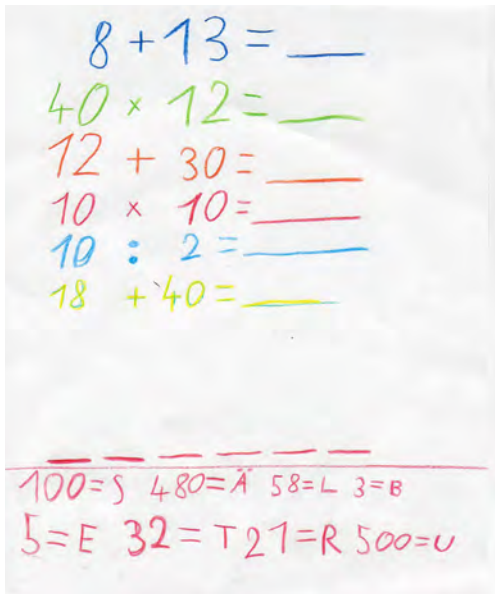 8 + 13 = ___
40 x 12 = ___
12 + 30 = ___
10 x 10 = ___
10 : 2 = ___
18 + 40 = ___
_ _ _ _ _ _
100=S 480=Ä 58=L 3=B
5=E 32=T 21=R 500=U